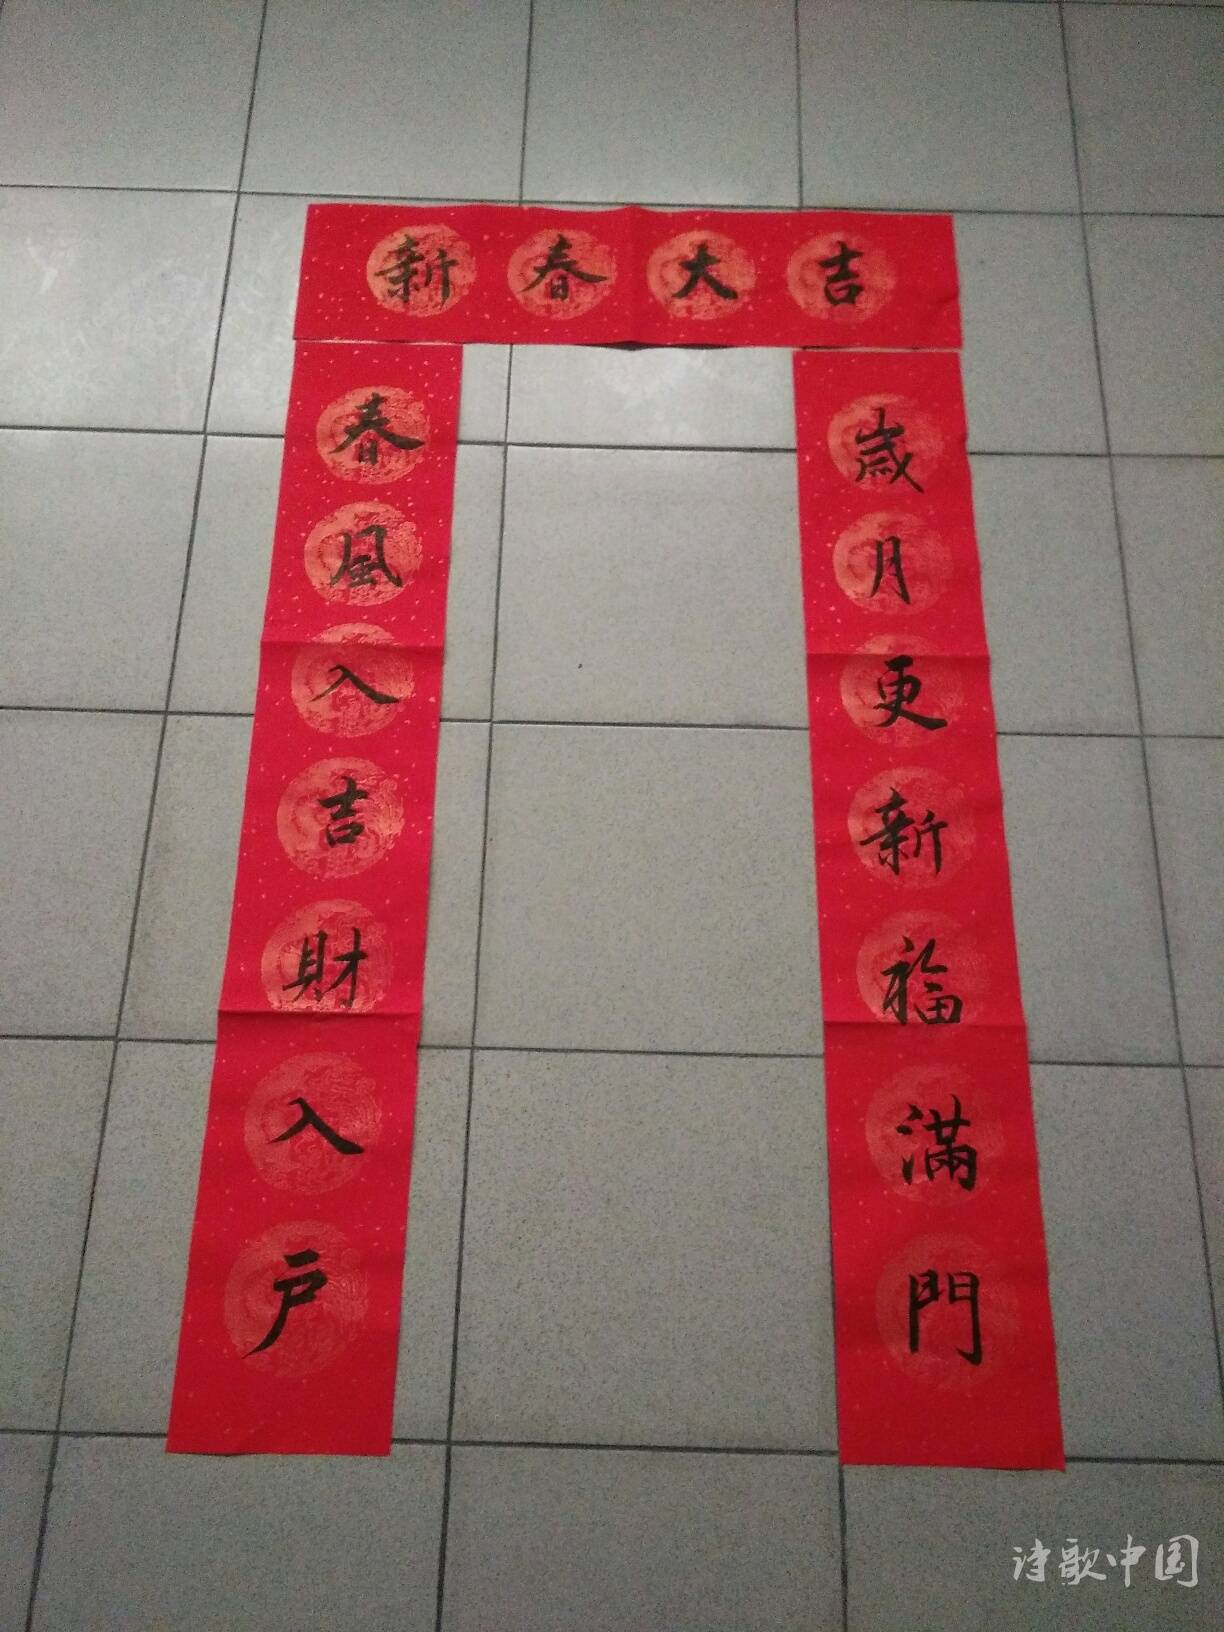 新春大吉
春風入吉財入戸
歲月更新福滿門
诗歌中国